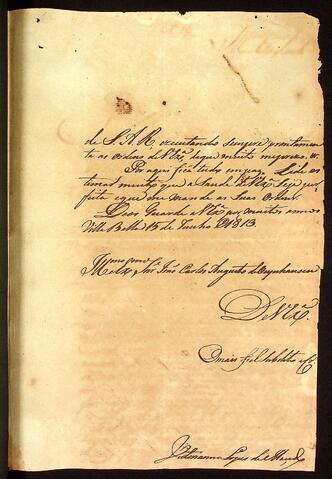 de S. A. R. executando sempre prontamen
te as ordens de V. Exª. de que muito me prezo. &
Por aqui fica tudo em paz.
timarei muito que a Saude de V. Exª. Seja per
feita e que me mande as Suas Ordens.
Deos Guarde a V. Exª. por muitos annos
Villa Bella 15 de Junho de 1813.
Illmo. e Exmo. Snr. João Carlos Augusto de Oeynhausen
De V. Exª.
O mais fiel Subdito
Lopes de